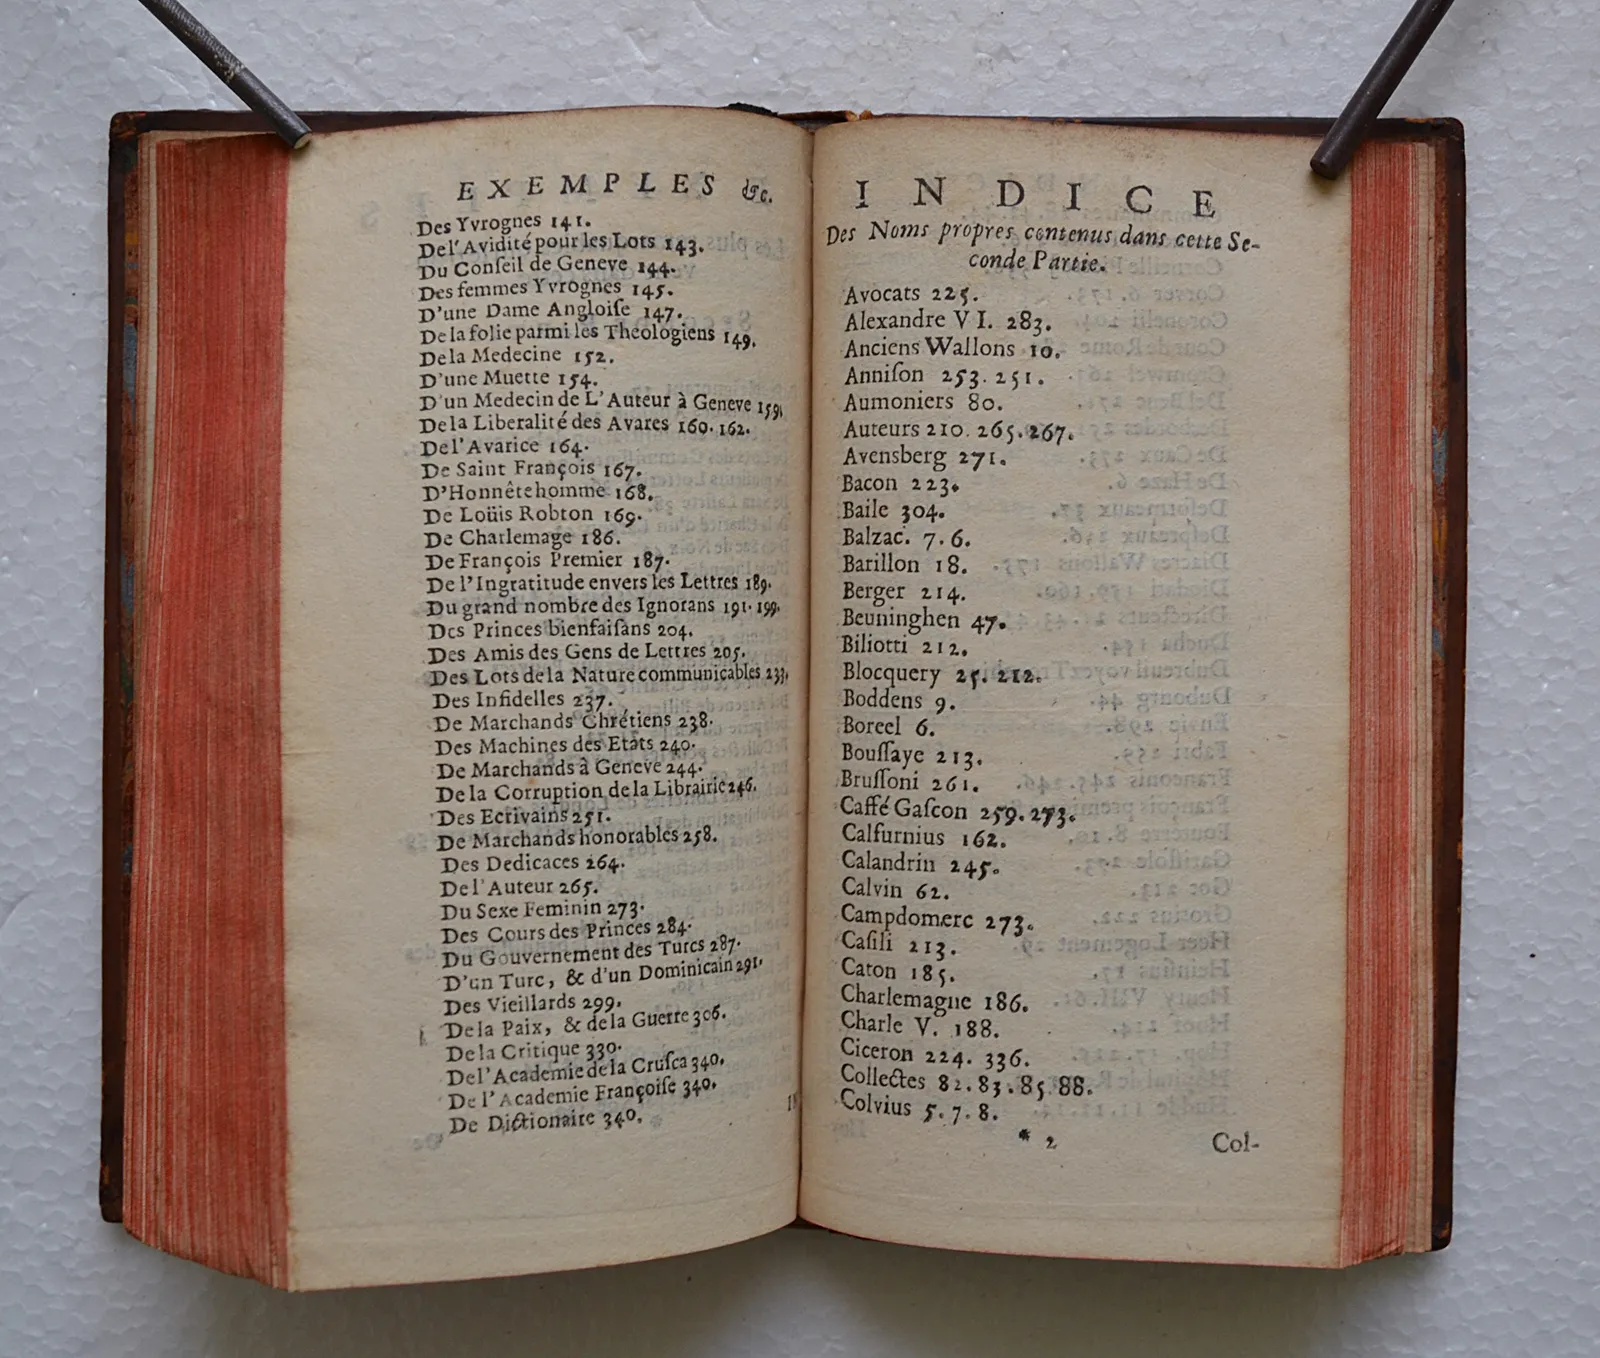 EXEMPLES &c.
Des Yvrognes 141.
De l'Avidité pour les Lots 143.
Du Conſeil de Geneve 144.
Des femmes Yvrognes 145.
D'une Dame Angloiſe 147.
De la folie parmi les Theologiens 149.
De la Medecine 152.
D'une Muette 154.
D'un Medecin de L'Auteur à Geneve 159.
De la Liberalité des Avares 160. 162.
De l'Avarice 164.
De Saint François 167.
D'Honnêtehomme 168.
De Loüis Robton 169.
De Charlemage 186.
De François Premier 187.
De l'Ingratitude envers les Lettres 189.
Du grand nombre des Ignorans 191. 199.
Des Princes bienfaiſans 204.
Des Amis des Gens de Lettres 205.
Des Lots de la Nature communicables 233.
Des Infidelles 237.
De Marchands Chrétiens 238.
Des Machines des Etats 240.
De Marchands à Geneve 244.
De la Corruption de la Librairie 246.
Des Ecrivains 251.
De Marchands honorables 258.
Des Dedicaces 264.
De l'Auteur 265.
Du Sexe Feminin 273.
Des Cours des Princes 284.
Du Gouvernement des Turcs 287.
D'un Turc, & d'un Dominicain 291.
Des Vieillards 299.
De la Paix, & de la Guerre 306.
De la Critique 330.
De l'Academie de la Cruſca 340.
De l'Academie Françoiſe 340.
De Dictionaire 340.
INDICE
Des Noms propres contenus dans cette Se-
conde Partie.
Avocats 225.
Alexandre VI. 283.
Anciens Wallons 10.
Anniſon 253. 251.
Aumoniers 80.
Auteurs 210. 265. 267.
Avensberg 271.
Bacon 223.
Baile 304.
Balzac. 7. 6.
Barillon 18.
Berger 214.
Beuninghen 47.
Biliotti 212.
Blocquery 25. 212.
Boddens 9.
Boreel 6.
Bouſſaye 213.
Bruſſoni 261.
Caffé Gaſcon 259. 273.
Calfurnius 162.
Calandrin 245.
Calvin 62.
Campdomerc 273.
Caſili 213.
Caton 185.
Charlemagne 186.
Charle V. 188.
Ciceron 224. 336.
Collectes 82. 83. 85. 88.
Colvius 5. 7. 8.
* 2 Col-